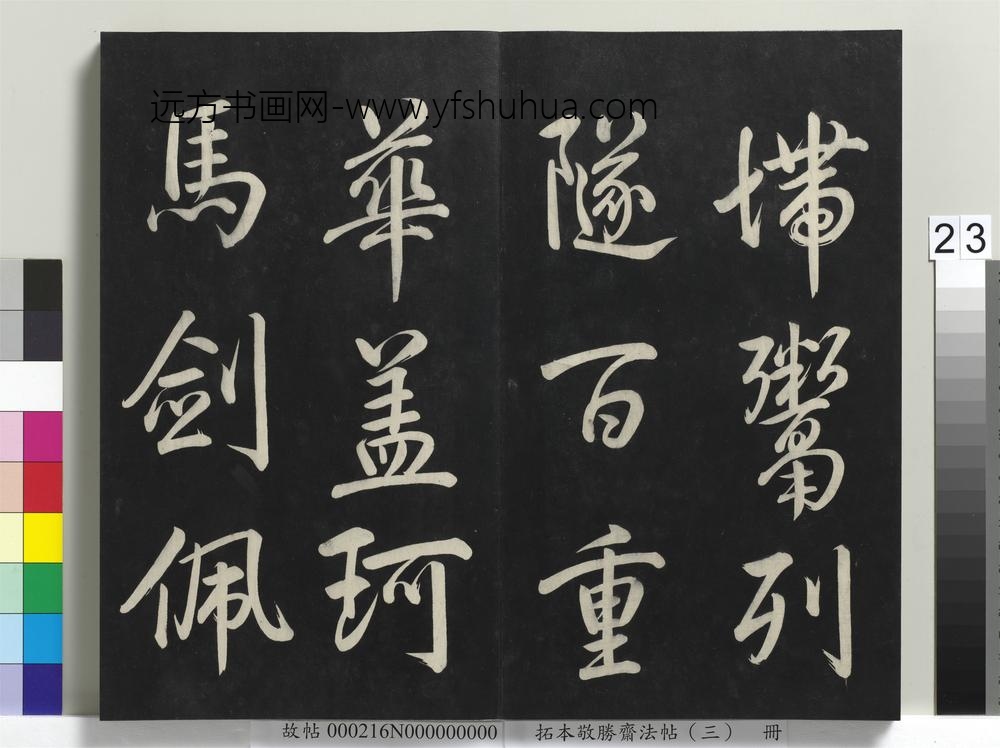 远方书画网-www.yfshuhua.com
墆鬻列
隧百重
華盖珂
馬劍佩
23
故帖 000216N000000000 拓本敬勝齋法帖（三） 冊